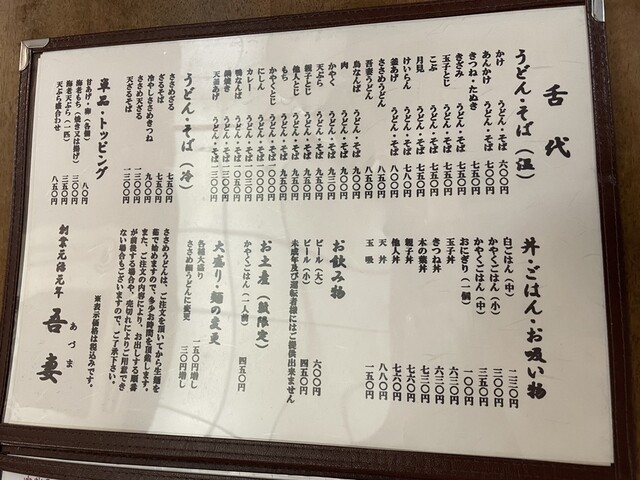 舌代
うどん・そば（温）
かけ うどん・そば 六〇〇円
あんかけ うどん・そば 七〇〇円
きつね・たぬき うどん・そば 七五〇円
きざみ うどん・そば 七五〇円
玉子とじ うどん・そば 七五〇円
こぶ うどん・そば 七五〇円
月見 うどん・そば 七五〇円
けいらん うどん・そば
釜あげ うどん・そば 八〇〇円
ささめうどん 八五〇円
吾妻うどん 八五〇円
鳥なんば うどん・そば
肉 うどん・そば
かやく うどん・そば
天ぷら うどん・そば
親子とじ うどん・そば 九五〇円
他人とじ うどん・そば 九五〇円
もち うどん・そば 九五〇円
かやくとじ うどん・そば 一〇〇〇円
にしん うどん・そば 一〇〇〇円
カレー うどん・そば 一〇〇〇円
鴨なんば うどん・そば
鍋焼き うどん・そば
天釜あげ うどん・そば 一三〇〇円
うどん・そば（冷）
ささめざる 七五〇円
ざるそば 七五〇円
冷やしささめきつね 九〇〇円
ささめ天ざる 一三〇〇円
天ざるそば 一三〇〇円
単品・トッピング
甘あげ・卵（各個） 八〇円
海老もち（焼き又は揚げ） 三〇〇円
海老天ぷら（一匹） 三五〇円
天ぷら盛合わせ 八五〇円
丼・ごはん・お吸い物
白ごはん（中） 二三〇円
かやくごはん（小） 三〇〇円
かやくごはん（中） 三五〇円
おにぎり（一個） 一〇〇円
玉子丼 六三〇円
きつね丼 六三〇円
木の葉丼 七三〇円
親子丼 七六〇円
他人丼 七六〇円
天丼 八八〇円
玉吸 一五〇円
お飲み物
ビール（大） 六〇〇円
ビール（小） 四五〇円
未成年及び運転者様にはご提供出来ません
お土産（数限定）
かやくごはん（一人前） 四五〇円
大盛り・麺の変更
各種大盛り 一五〇円増し
ささめ細うどんに変更 三〇円増し
ささめうどんは、ご注文を頂いてから生麺を
茹で始めますので、多少お時間を頂戴します。
また、ご注文の内容により、お出しする順番
が前後する場合や、売切れによりご用意でき
ない場合もございますので、ご了承下さい。
※表示価格は税込みです。
創業元治元年
あづま
吾妻